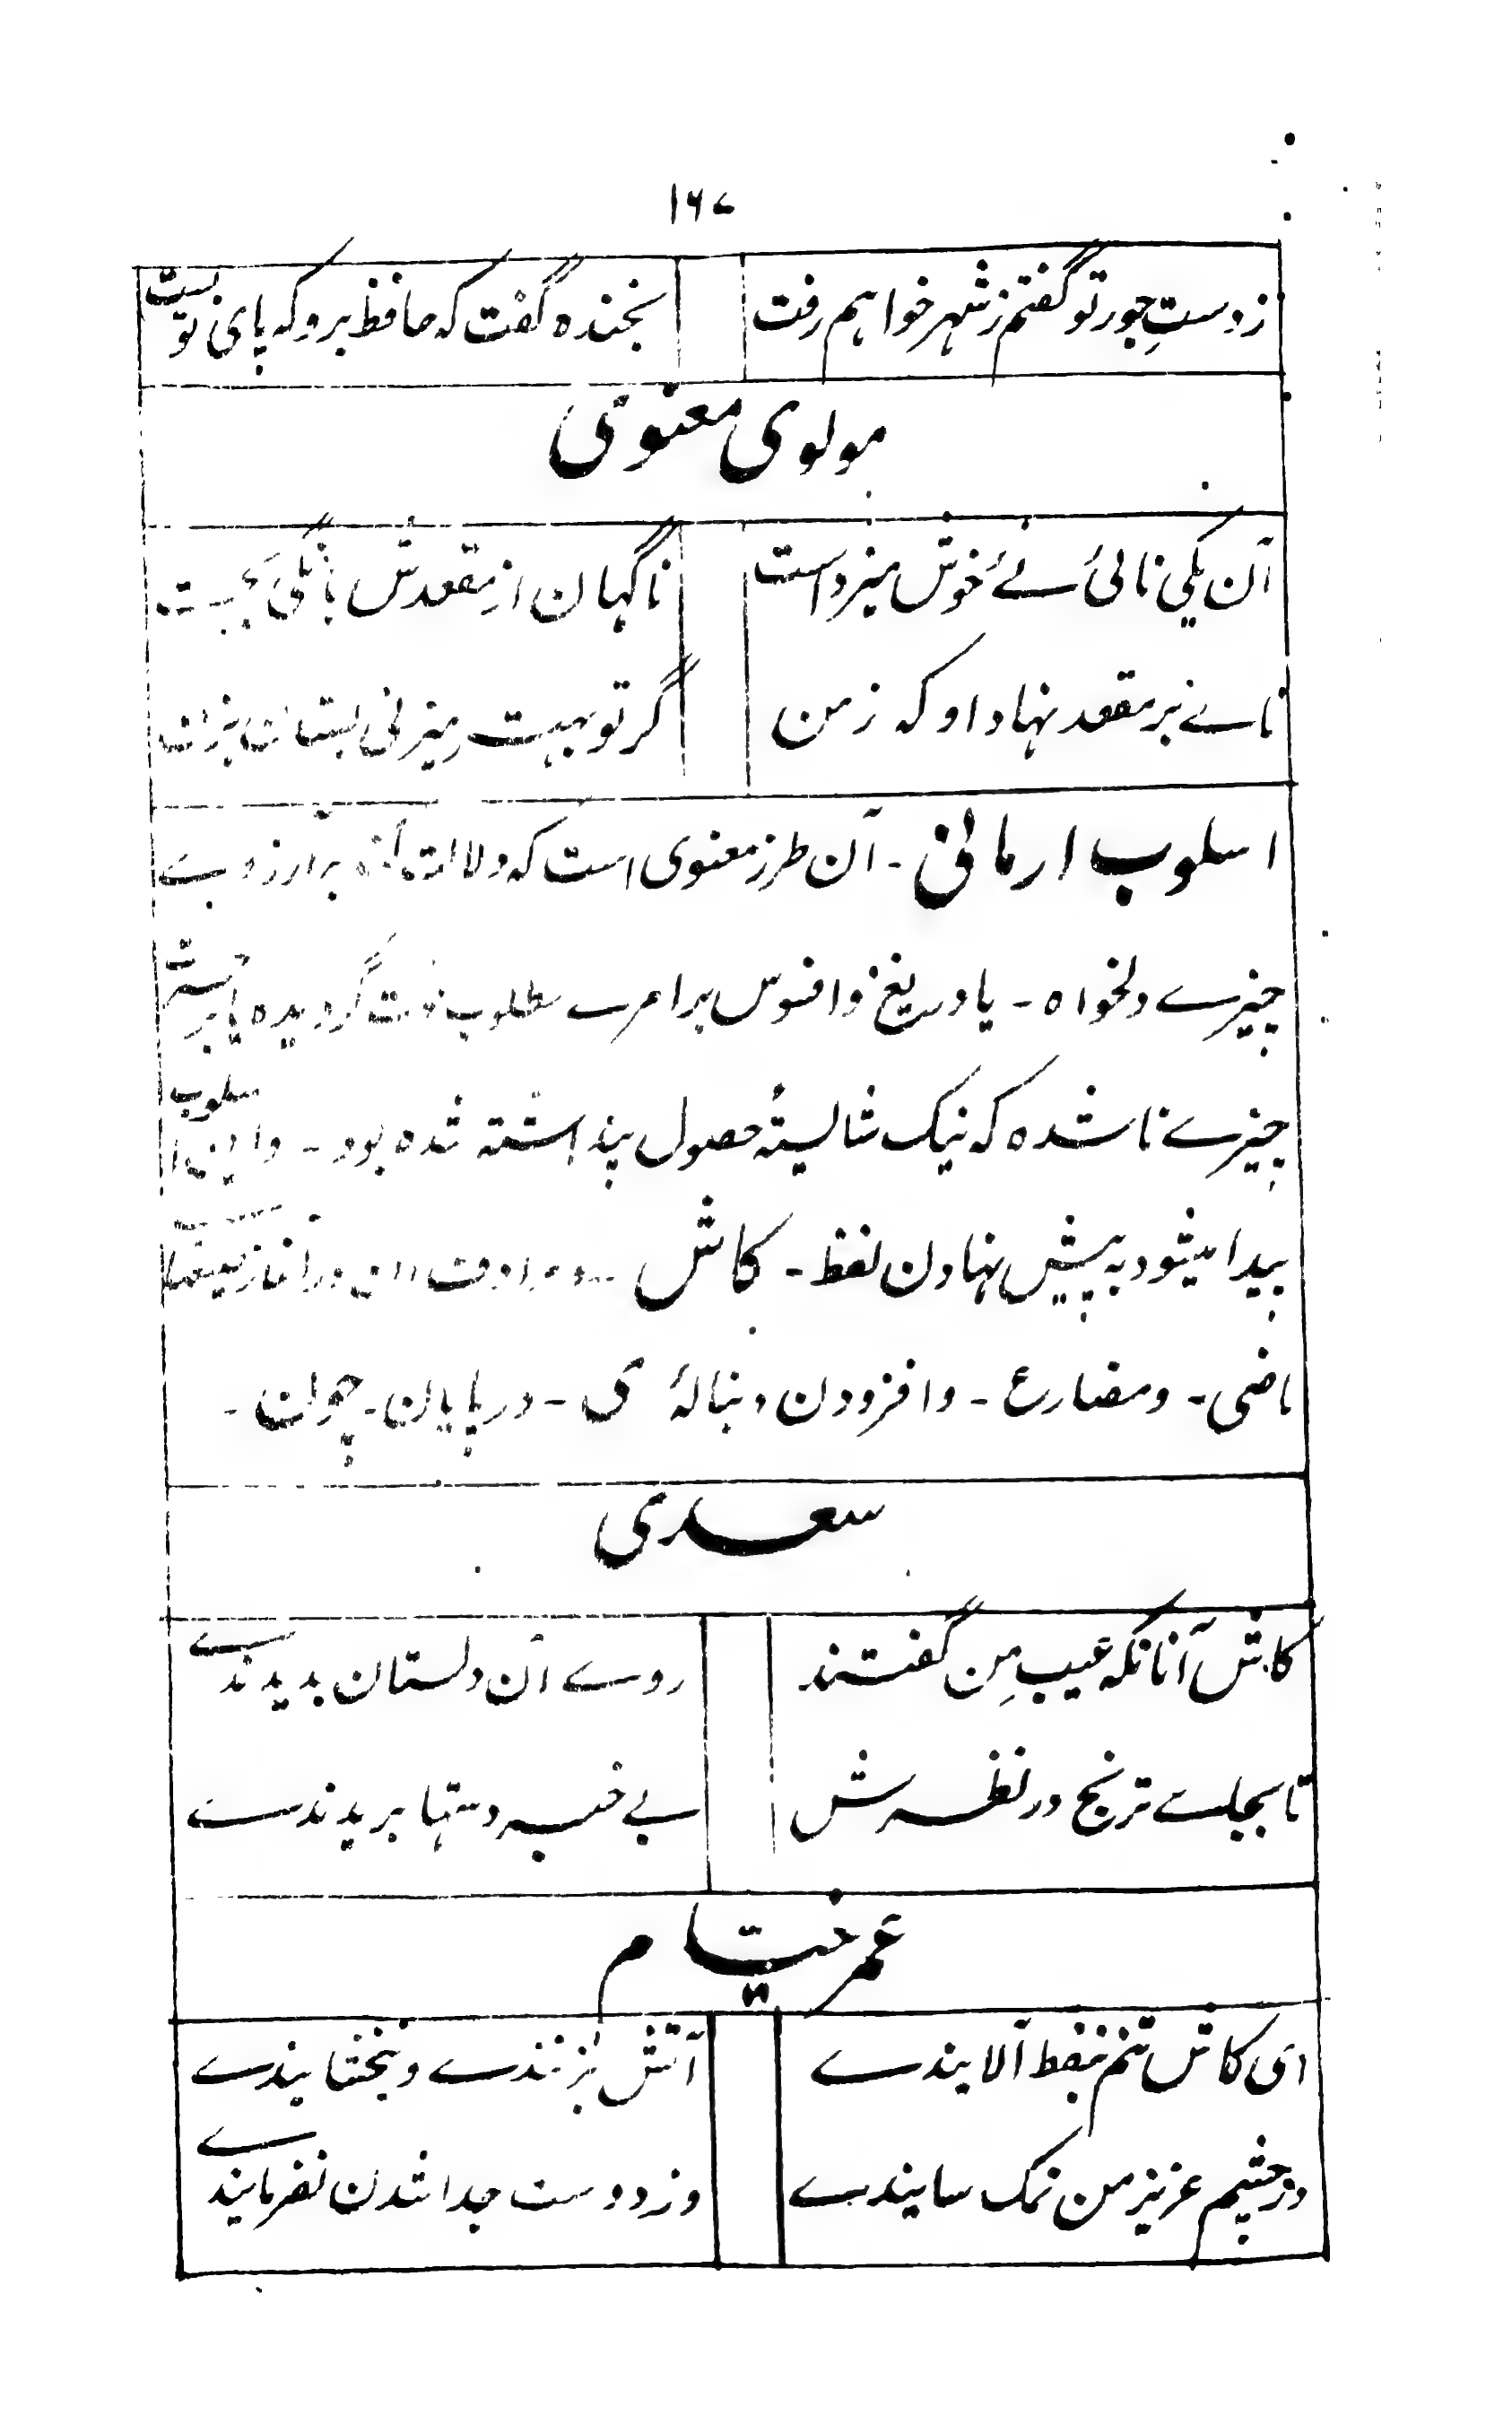 ۱۶۷
ز دستِ جور تو گفتم ز شهر خواهم رفت بخنده گفت که حافظ برو که پای تو بست
مولوی معنوی
آن یکی نائی نے خوش میزد است ناگهان از مقعدش بادی بجست
نائے بر مقعد نهاد او که ز من گر تو بهت میزنی بستان بزن
اسلوب ارمانی ۔ آن طرز معنوی است که دلالت بر آرزوے
چیزے دلخواه ۔ یا دریغ و افسوس بر امرے مطلوب فوت گردیده یا بر
چیزے ناشده که نیک شایستۂ حصول پنداشته شده بود ۔ و این اسلوب
پیدا میشود به پیش نهادن لفظ ۔ کاش در آغاز
ماضی ۔ و مضارع ۔ و افزودن دنبالۂ ی ۔ در پایان ۔ چون ۔
سعدی
کاش آنانکه عیب مِن گفتند روے آن دلستان بدیدندے
تا بجاے ترنج در نظرش بے خبر دستها بریدندے
عمر خیام
ای کاش تنم بنفط آلایندے آتش بزنندے و نبخشایندے
در چشم عزیز من نمک سایندے وز دوست جدا شدن نفرمایندے